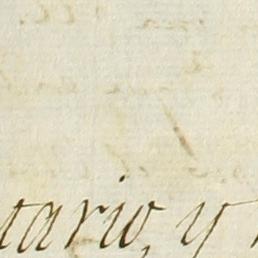 tario, y